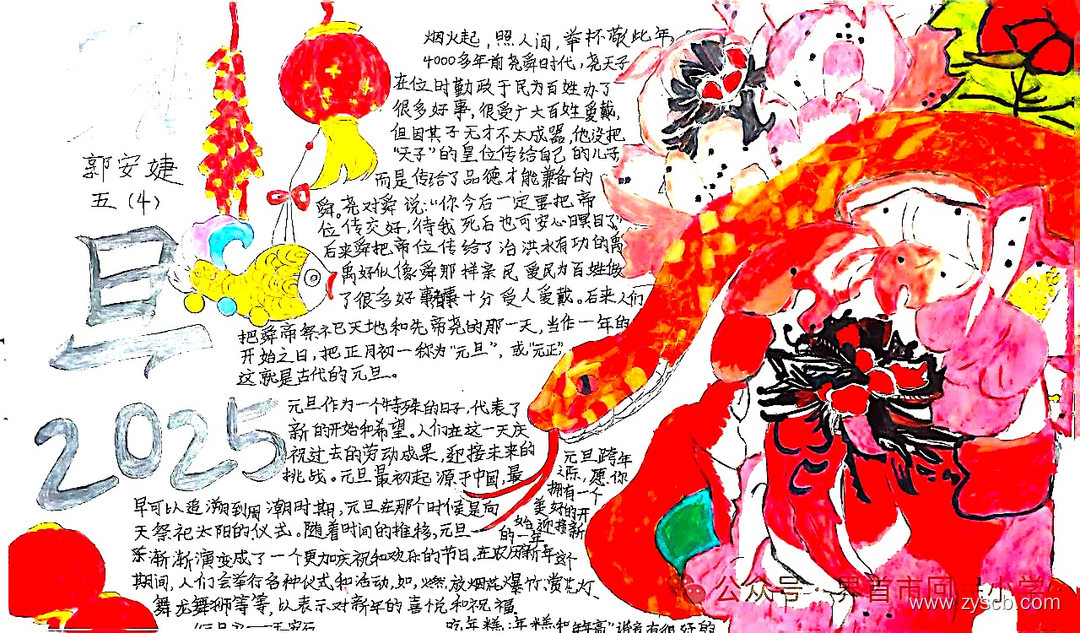 郭安婕
五(4)
旦
2025
烟火起,照人间,举杯敬此年
4000多年前尧舜时代,尧天子
在位时勤政于民为百姓办了
很多好事,很受广大百姓爱戴,
但因其子无才不太成器,他没把
"天子"的皇位传给自己的儿子
而是传给了品德才能兼备的
舜。尧对舜说:"你今后一定要把帝
位传交好,待我死后也可安心瞑目了"
后来舜把帝位传给了治洪水有功的禹
禹好似像舜那样亲民爱民为百姓做
了很多好事十分受人爱戴。后来人们
把舜帝祭祀天地和先帝尧的那一天,当作一年的
开始之日,把正月初一称为"元旦",或"元正"
这就是古代的元旦。
元旦作为一个特殊的日子,代表了
新的开始和希望。人们在这一天庆
祝过去的劳动成果,迎接未来的
挑战。元旦最初起源于中国,最
早可以追溯到周潮时期,元旦在那个时候是向
天祭祀太阳的仪式。随着时间的推移,元旦
渐渐演变成了一个更加庆祝和欢乐的节日。在农历新年这个
期间,人们会举行各种仪式和活动,如,燃放烟花爆竹,赏花灯
舞龙舞狮等等,以表示对新年的喜悦和祝福
元旦跨年
之际,愿你
拥有一个
美好的开
始,迎接新
的一年
吃年糕:年糕和"年高"谐音有很好的
公众号·界首市回小学
www.zyscb.com